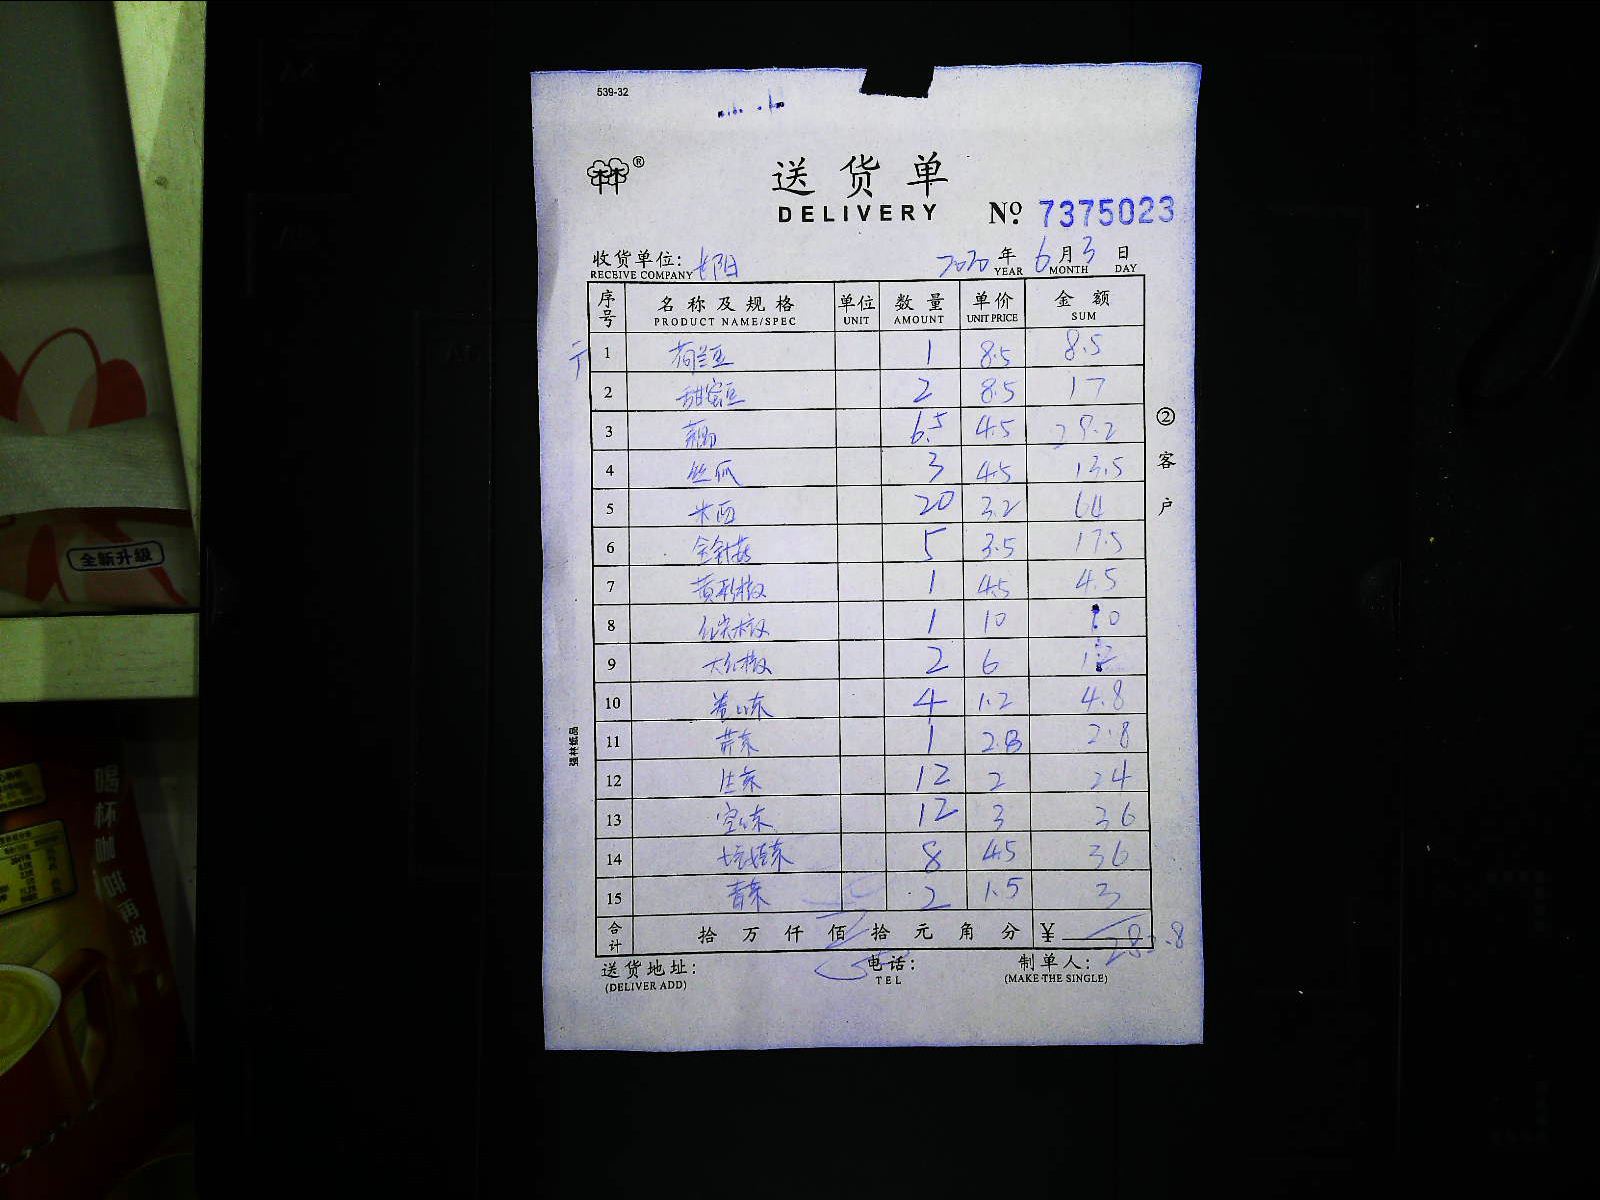 539-32
®
送货单
DELIVERY № 7375023
收货单位: 长阳 2020 年 6 月 3 日
RECEIVE COMPANY YEAR MONTH DAY
序号 名称及规格 单位 数量 单价 金额
PRODUCT NAME/SPEC UNIT AMOUNT UNIT PRICE SUM
1 荷兰豆 1 8.5 8.5
2 甜蜜豆 2 8.5 17
3 6.5 4.5 29.2
4 丝瓜 3 4.5 13.5
5 米西 20 3.2 64
6 金针菇 5 3.5 17.5
7 黄彩椒 1 4.5 4.5
8 红尖椒 1 10 10
9 大红椒 2 6 12
10 4 1.2 4.8
11 芹菜 1 2.8 2.8
12 生菜 12 2 24
13 空心菜 12 3 36
14 8 4.5 36
15 青菜 2 1.5 3
合计 拾 万 仟 佰 拾 元 角 分 ¥ 282.8
送货地址: 电话: 制单人:
(DELIVER ADD) TEL (MAKE THE SINGLE)
②客户
强林纸品
全新升級
喝杯咖啡再说